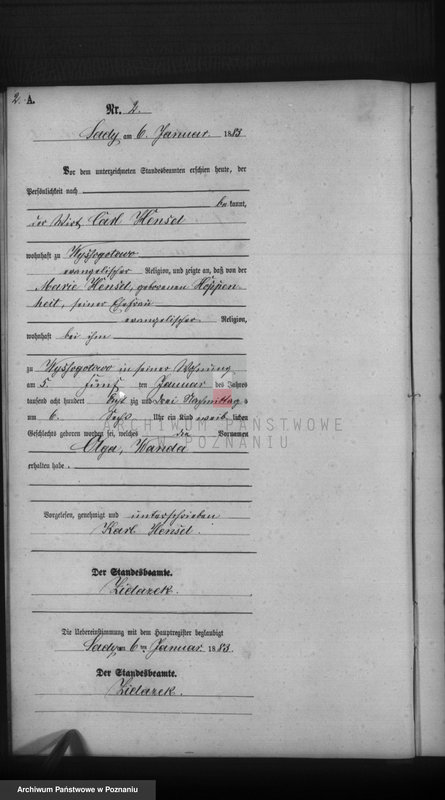 2. A.
Nr. 2.
Sady am 6. Januar 1883
Vor dem unterzeichneten Standesbeamten erschien heute, der
Persönlichkeit nach
be kannt,
der Wirt Carl Hensel
wohnhaft zu Wyssogotowo
evangelischer Religion, und zeigte an, daß von der
Marie Hensel, geborenen Höppen-
heit, seiner Ehefrau
evangelischer Religion,
wohnhaft bei ihm
zu Wyssogotowo in seiner Wohnung
am 5. fünf ten Januar des Jahres
tausend acht hundert acht zig und drei Nachmittag s
um 6. Sechs Uhr ein Kind weib lichen
Geschlechts geboren worden sei, welches die Vornamen
Olga, Wanda
erhalten habe.
Vorgelesen, genehmigt und unterschrieben
Karl Hensel.
Der Standesbeamte.
Zidarek.
Die Uebereinstimmung mit dem Hauptregister beglaubigt
Sady am 6ten Januar 1883.
Der Standesbeamte.
Zidarek.
ARCHIWUM PAŃSTWOWE
W POZNANIU
Archiwum Państwowe w Poznaniu